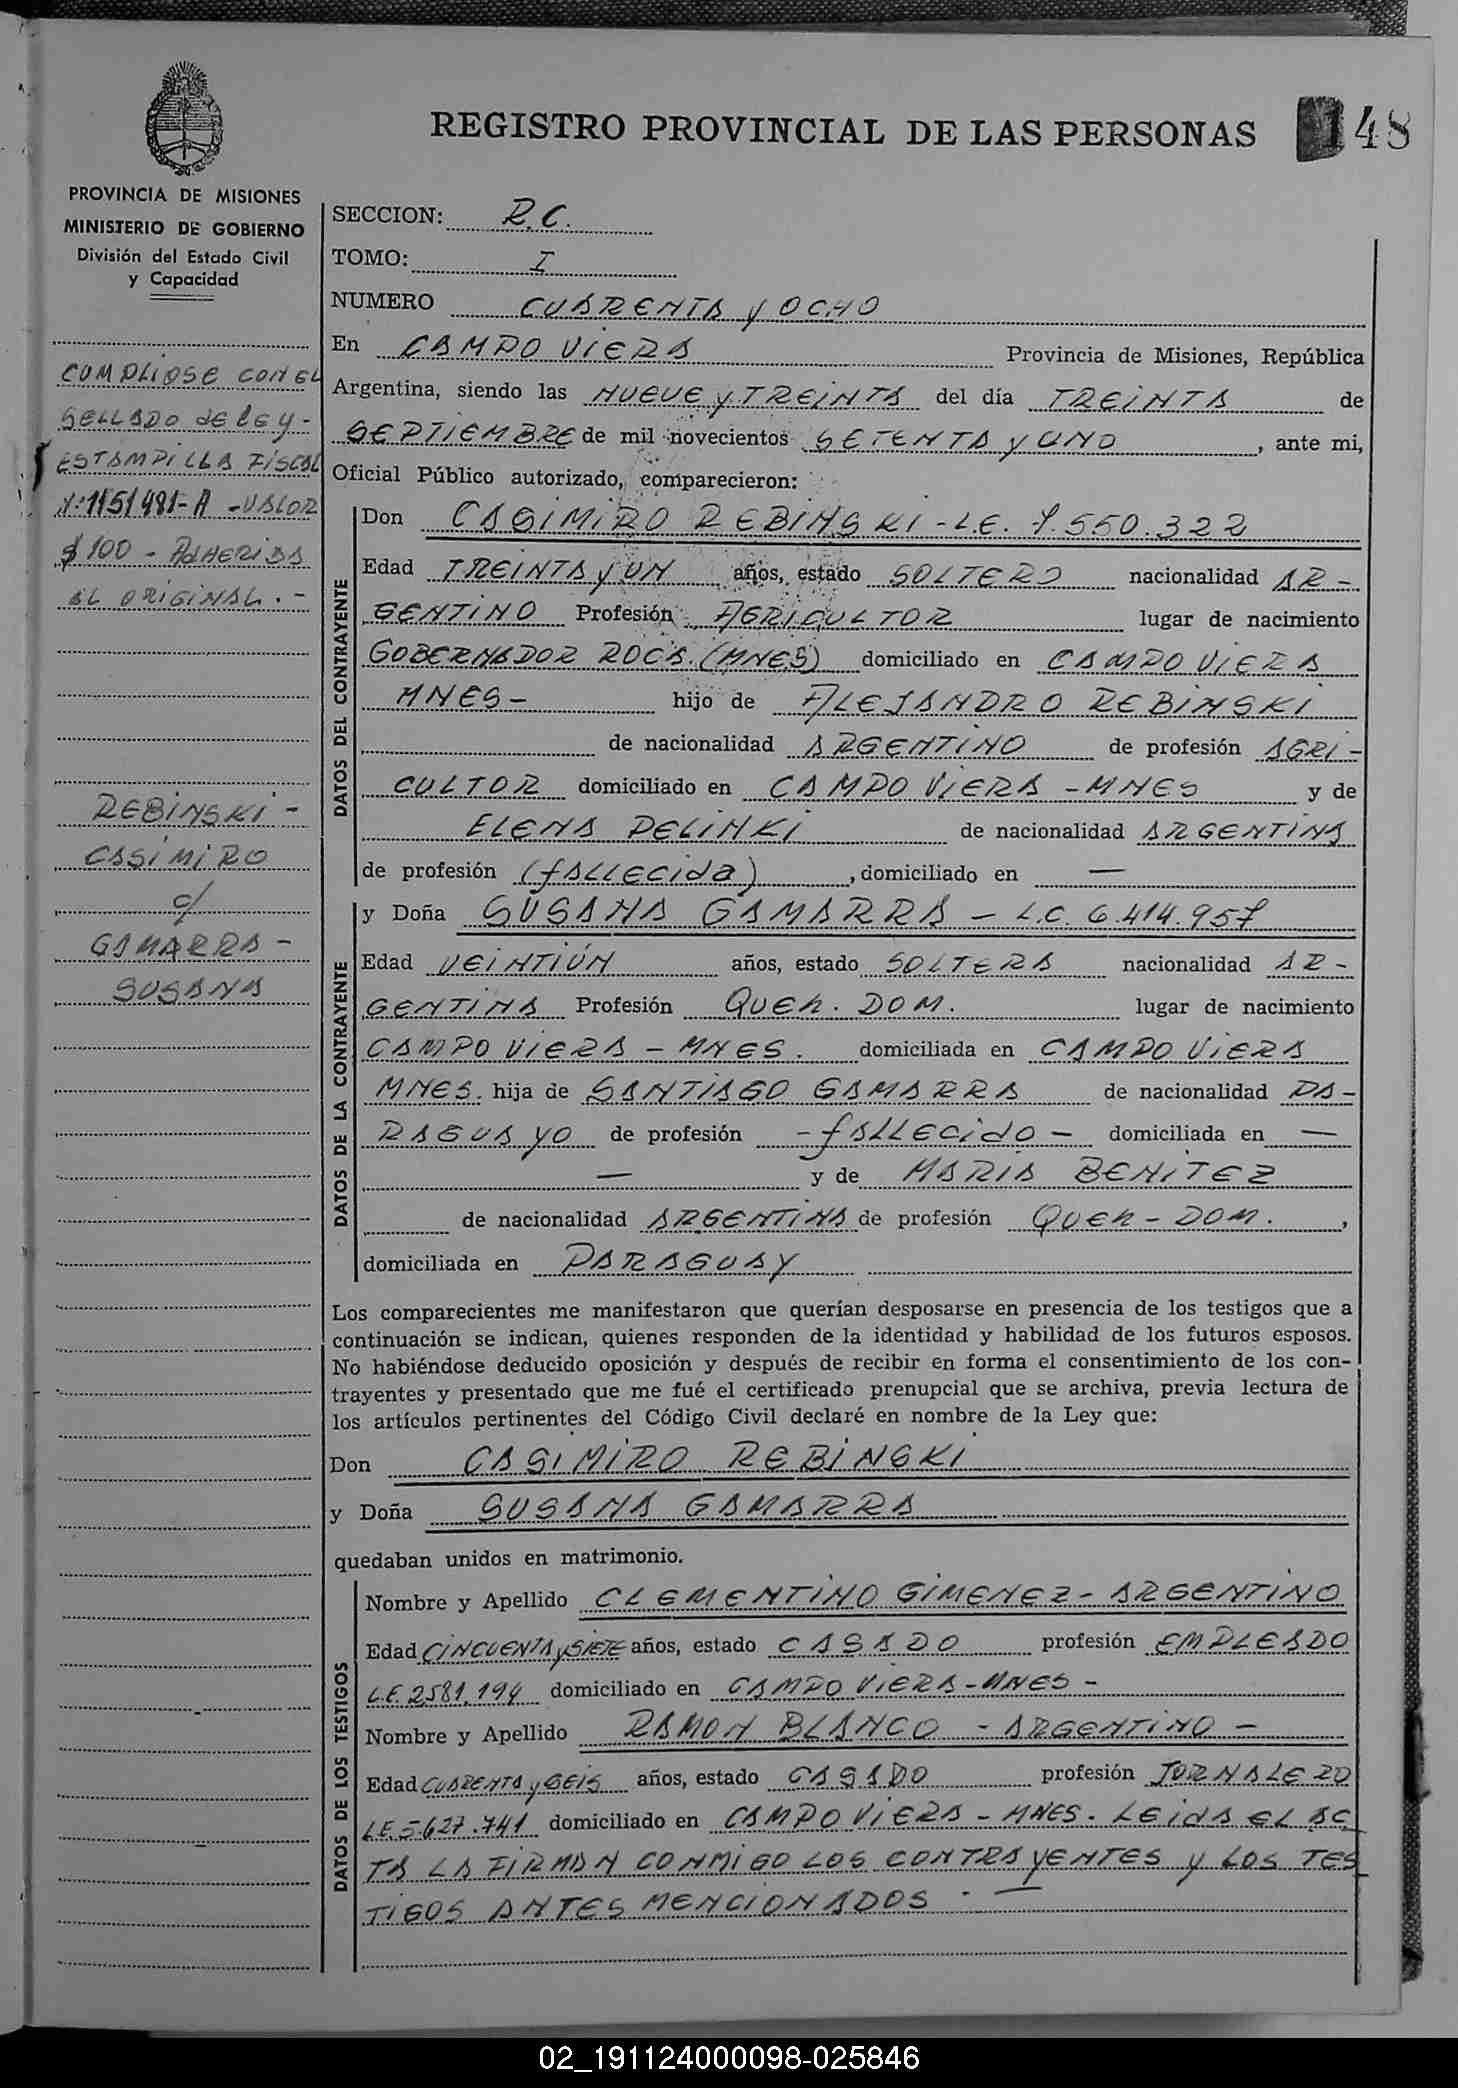 REGISTRO PROVINCIAL DE LAS PERSONAS
148
PROVINCIA DE MISIONES
MINISTERIO DE GOBIERNO
División del Estado Civil
y Capacidad
CUMPLIOSE CON EL
SELLADO de LEY-
ESTAMPILLA FISCAL
Nº 1151481-A - VALOR
$100 - AdHERIDA
AL ORIGINAL.-
REBINSKI -
CASIMIRO
c/
GAMARRA -
SUSANA
SECCION: R.C.
TOMO: I
NUMERO CUARENTA y OCHO
En CAMPO VIERA Provincia de Misiones, República
Argentina, siendo las NUEVE y TREINTA del día TREINTA de
SEPTIEMBRE de mil novecientos SETENTA y UNO, ante mi,
Oficial Público autorizado, comparecieron:
DATOS DEL CONTRAYENTE
Don CASIMIRO REBINSKI - L.E. 7.550.322
Edad TREINTA y UN años, estado SOLTERO nacionalidad AR-
GENTINO Profesión AGRICULTOR lugar de nacimiento
GOBERNADOR ROCA. (MNES) domiciliado en CAMPO VIERA
MNES- hijo de ALEJANDRO REBINSKI
de nacionalidad ARGENTINO de profesión AGRI-
CULTOR domiciliado en CAMPO VIERA - MNES y de
ELENA PELINKI de nacionalidad ARGENTINA
de profesión (fALLECIdA), domiciliado en —
DATOS DE LA CONTRAYENTE
y Doña SUSANA GAMARRA - L.C. 6.414.957
Edad VEINTIÚN años, estado SOLTERA nacionalidad AR-
GENTINA Profesión QUEh. DOM. lugar de nacimiento
CAMPO VIERA - MNES. domiciliada en CAMPO VIERA
MNES. hija de SANTIAGO GAMARRA de nacionalidad PA-
RAGUAYO de profesión -fALLECIdO- domiciliada en —
— y de MARIA BENITEZ
de nacionalidad ARGENTINA de profesión QUEh-DOM. ,
domiciliada en PARAGUAY
Los comparecientes me manifestaron que querían desposarse en presencia de los testigos que a
continuación se indican, quienes responden de la identidad y habilidad de los futuros esposos.
No habiéndose deducido oposición y después de recibir en forma el consentimiento de los con-
trayentes y presentado que me fué el certificado prenupcial que se archiva, previa lectura de
los artículos pertinentes del Código Civil declaré en nombre de la Ley que:
Don CASIMIRO REBINSKI
y Doña SUSANA GAMARRA
quedaban unidos en matrimonio.
DATOS DE LOS TESTIGOS
Nombre y Apellido CLEMENTINO GIMENEZ - ARGENTINO
Edad CINCUENTA y SIETE años, estado CASADO profesión EMPLEADO
L.E. 2.581.194 domiciliado en CAMPO VIERA - MNES -
Nombre y Apellido RAMON BLANCO - ARGENTINO -
Edad CUARENTA y SEIS años, estado CASADO profesión JORNALERO
L.E. 5.627.741 domiciliado en CAMPO VIERA - MNES. LEIdA EL AC
TA LA FIRMAN CONMIGO LOS CONTRAYENTES y LOS TES
TIGOS ANTES MENCIONADOS.—
02_191124000098-025846